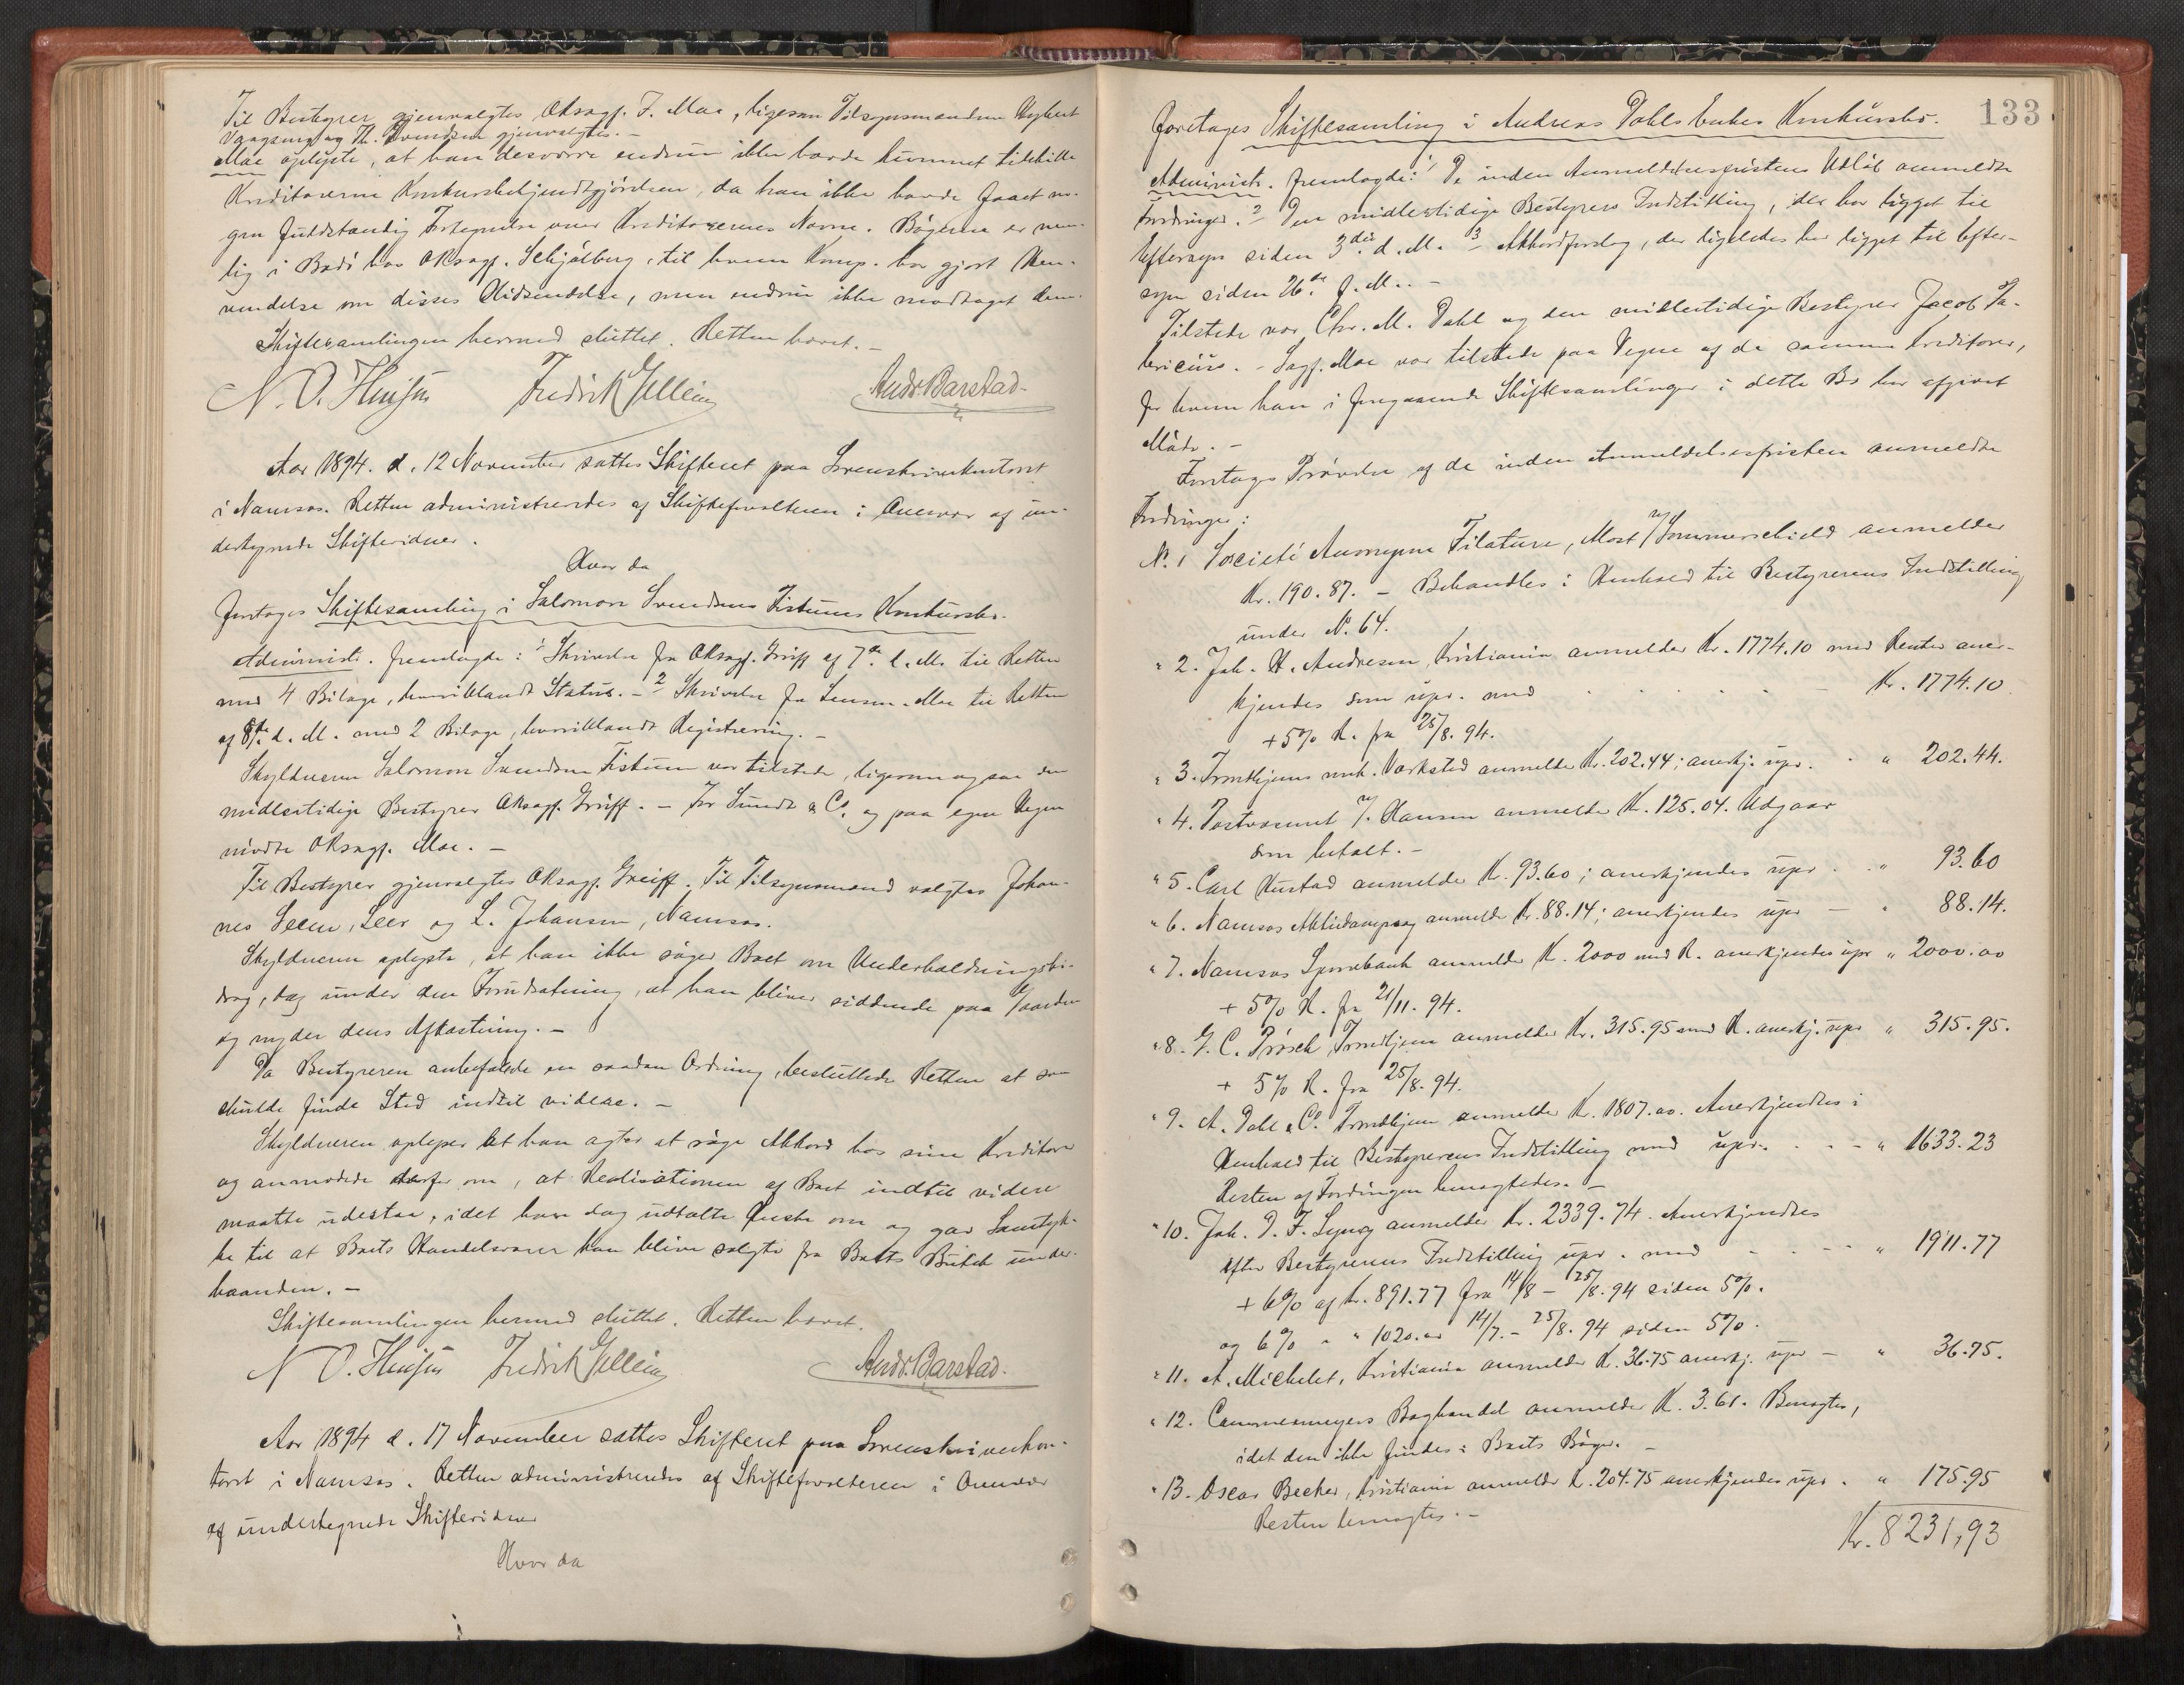 Til Bestyrer gjenvalgtes ORsagf. F. Moe, ligesom Tilsynsmændene
og Th. Svendsen gjenvalgtes. –
Moe oplyste, at han desværre endnu ikke havde kunnet tilstille
Kreditorerne Konkursbekjendtgjörelsen, da han ikke havde faaet no-
gen fuldstændig Fortegnelse over Kreditorernes Navne. Bögerne er nem-
lig i Bodö hos ORsagf. Schjölberg, til hvem Komp. har gjort Hen-
vendelse om disses Hidsendelse, men endnu ikke modtaget dem.
Skiftesamlingen hermed sluttet. Retten hævet. –
N. O. Fredrik Gellein Andr. Barstad
Aar 1894. d. 12 November sattes Skifteret paa Sorenskriverkontoret
i Namsos. Retten administreredes af Skifteforvalteren i Overvær af un-
dertegnede Skiftevidner.
Hvor da
foretoges Skiftesamling i Salomon Svendsens Fiskums Konkursbo.
Administr. fremlagde: 1 Skrivelse fra ORsagf. Greiff af 7de d. M. til Retten
med 4 Bilage, hvoriblandt Status. – 2 Skrivelse fra Lensm. Moe til Retten
af 8de d. M. med 2 Bilage, hvoriblandt Registrering. –
Skyldneren Salomon Svendsen Fiskum var tilstede, ligesom ogsaa den
midlertidige Bestyrer ORsagf. Greiff. – For Sundt & Co. og paa egne Vegne
mödte ORsagf. Moe. –
Til Bestyrer gjenvalgtes ORsagf. Greiff. Til Tilsynsmænd valgtes Johan-
nes Seem, Seem og L. Johansen, Namsos.
Skyldneren oplyste, at han ikke söger Boet om Underholdningsbi-
drag, dog under den Forudsætning, at han bliver siddende paa Gaarden
og nyder dens Afkastning. –
Da Bestyreren anbefalede en saadan Ordning, besluttede Retten at saa
skulde finde Sted indtil videre. –
Skyldneren oplyser at han agter at söge Akkord hos sine Kreditorer
og anmodede derfor om, at Realisationen af Boet indtil videre
maatte udestaa, idet han dog udtalte Önske om og gav Samtyk-
ke til at Boets Handelsvarer kan blive solgte fra Boets Butik under-
haanden. –
Skiftesamlingen hermed sluttet. Retten hævet.
N. O. Fredrik Gellein Andr. Barstad.
Aar 1894 d. 17 November sattes Skifteret paa Sorenskriverkon-
toret i Namsos. Retten administreredes af Skifteforvalteren i Overvær
af undertegnede Skiftevidner
Hvor da
133
foretoges Skiftesamling i Andreas Dahls Enkes Konkursbo.
Administr. fremlagde: 1 De inden Anmeldelsesfristens Udlöb anmeldte
Fordringer. 2 Den midlertidige Bestyrers Indstilling, der har ligget til
Eftersyn siden 3die d. M. 3 Akkordforslag, der ligeledes har ligget til Efter-
syn siden 26de f. M. –
Tilstede var Chr. M. Dahl og den midlertidige Bestyrer Jacob Fa-
bricius. – Sagf. Moe var tilstede paa Vegne af de samme Kreditorer,
for hvem han i foregaaende Skiftesamlinger i dette Bo har afgivet
Möde. –
Foretoges Prövelse af de inden Anmeldelsesfristen anmeldte
Fordringer:
N. 1 Societé Anonyme Filature, Most v/ Sommerschield anmelder
Kr. 190.87. – Behandles i Henhold til Bestyrerens Indstilling
under N. 64.
" 2. Joh. H. Andresen, Kristiania anmelder Kr. 1774.10 med Renter aner-
kjendes som upr. med – Kr. 1774.10
+ 5% R. fra 25/8. 94.
" 3. Trondhjems mek. Værksted anmelder Kr. 202.44; anerkj. upr. " 202.44.
" 4. Postvæsenet v/ J. Hansen anmelder K. 125.04. Udgaar
som betalt. –
" 5. Carl Hustad anmelder Kr. 93.60; anerkjendes upr. " 93.60
" 6. Namsos Aktiedampsag anmelder Kr. 88.14; anerkjendes upr – " 88.14.
" 7. Namsos Sparebank anmelder K. 2000 med R. anerkjendes upr " 2000.00
+ 5% R. fra 21/11. 94.
" 8. J. C. Pirsch, Trondhjem anmelder Kr. 315.95 med R. anerkj. upr " 315.95.
+ 5% R. fra 25/8. 94.
" 9. A. Dahl & Co. Trondhjem anmelder Kr. 1807.00. Anerkjendtes i
Henhold til Bestyrerens Indstilling med upr. – " 1633.23
Resten af Fordringen benegtedes. –
" 10. Joh. D. F. Lysøg anmelder Kr. 2339.74. Anerkjendtes
efter Bestyrerens Indstilling upr. med – " 1911.77
+ 6% af Kr. 891.77 fra 14/8 – 25/8. 94 siden 5%.
og 6% " " 1020.00 14/7. – 25/8. 94 siden 5%.
" 11. A. Michelet, Kristiania anmelder K. 36.75 anerkj. upr – " 36.75.
" 12. Cammermeyers Boghandel anmelder K. 3.61. Benegtes,
idet den ikke findes i Boets Böger. –
" 13. Oscar Becker, Kristiania anmelder K. 204.75 anerkjendes upr. " 175.95
Resten benegtes. –
Kr. 8231,93